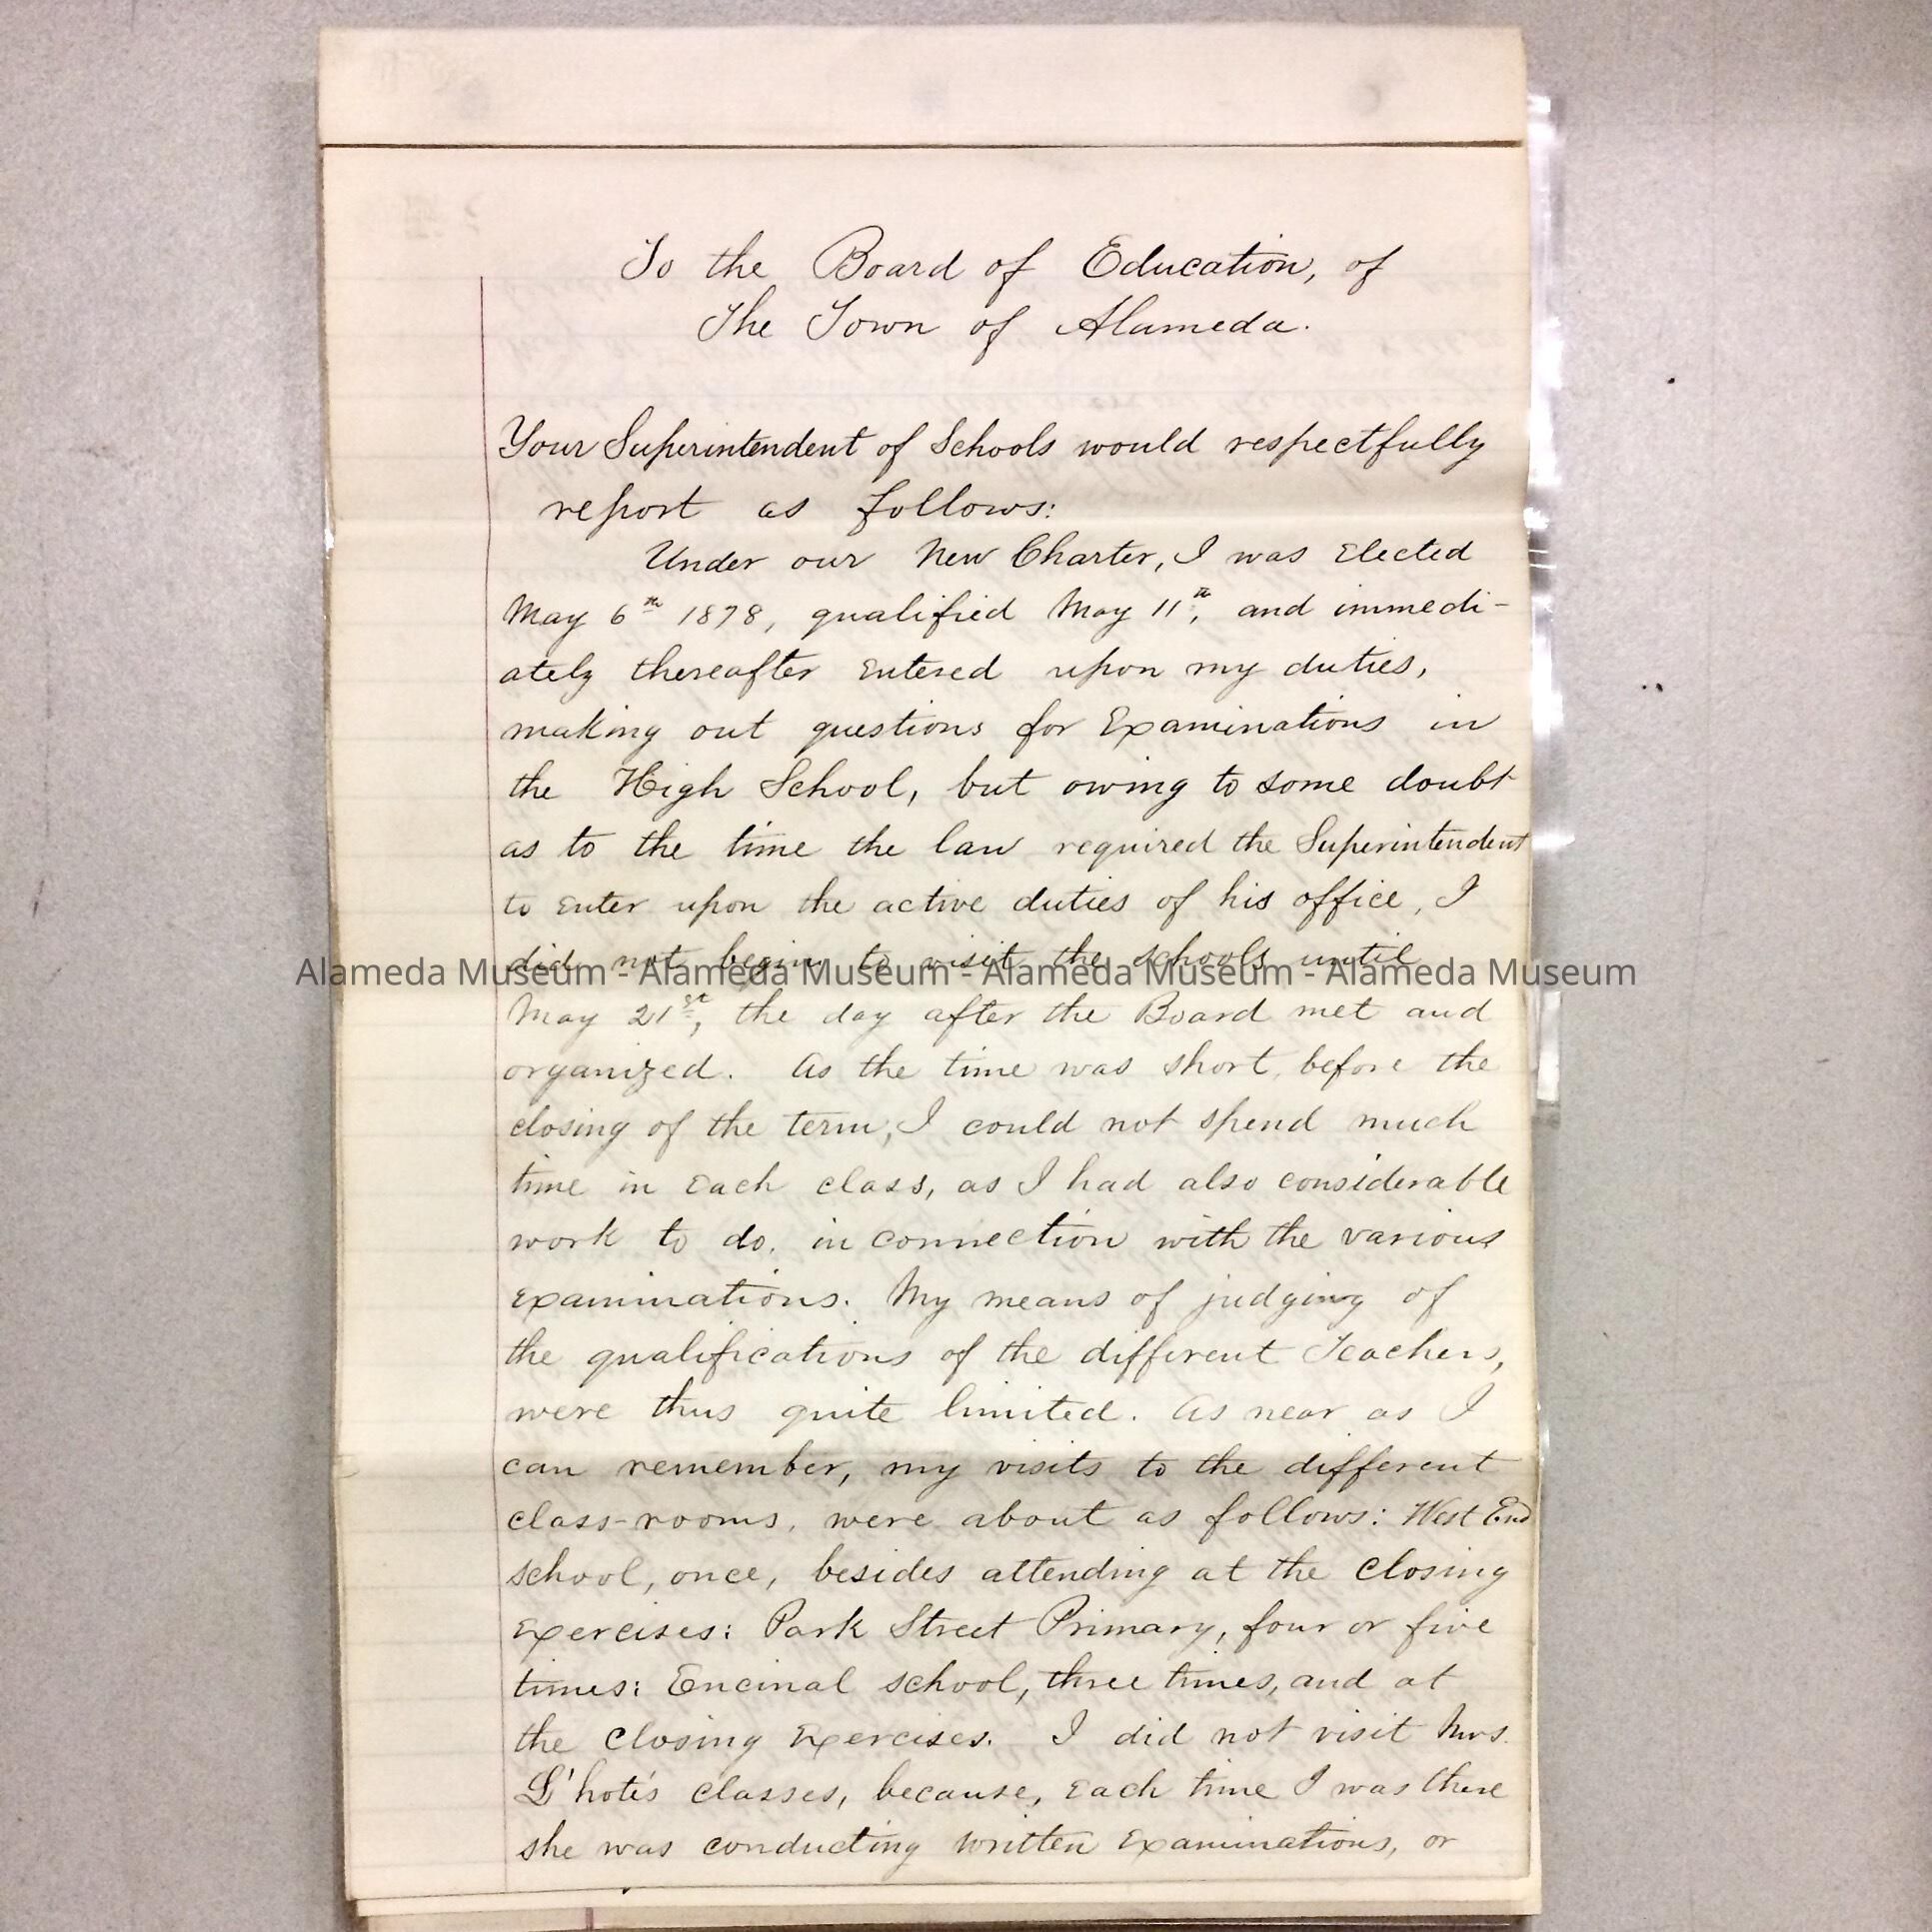 To the Board of Education, of
The Town of Alameda.
Your Superintendent of Schools would respectfully
report as follows:
Under our New Charter, I was Elected
May 6th 1878, qualified May 11th, and immedi-
ately thereafter Entered upon my duties,
making out questions for Examinations in
the High School, but owing to some doubt
as to the time the law required the Superintendent
to Enter upon the active duties of his office, I
did not begin to visit the schools until
Alameda Museum - Alameda Museum - Alameda Museum - Alameda Museum
May 21st, the day after the Board met and
organized. As the time was short, before the
closing of the term, I could not spend much
time in Each class, as I had also considerable
work to do, in connection with the various
Examinations. My means of judging of
the qualifications of the different Teachers,
were thus quite limited. As near as I
can remember, my visits to the different
class-rooms, were about as follows: West End
school, once, besides attending at the closing
Exercises: Park Street Primary, four or five
times: Encinal school, three times, and at
the closing Exercises. I did not visit Mrs.
L'hote's classes, because, Each time I was there
she was conducting written Examinations, or